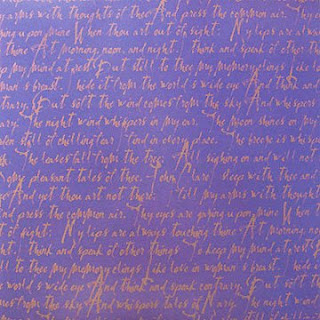 arms with thoughts of thee And press the common air. Thy
gazing upon mine When thou art out of sight. My lips are always
thine At morning, noon, and night. I think and speak of other things
my mind at rest But still to thee my memory clings Like love
woman's breast. I hide it from the world's wide eye And think and
contrary. But soft the wind comes from the sky And whispers
The night wind whispers in my ear. The moon shines on my
den still of chilling fear I find in every place. The breeze is whispering
The leaves fall from the tree. All sighing on and will not
me pleasant tales of thee. John Clare I sleep with thee and
And yet thou art not there. I fill my arms with thoughts
And press the common air. Thy eyes are gazing upon mine When
of sight. My lips are always touching thine At morning, noon
I think and speak of other things To keep my mind at rest
to thee my memory clings Like love in woman's breast. I hide
world's wide eye And think and speak contrary. But soft
comes from the sky And whispers tales of Mary. The night wind